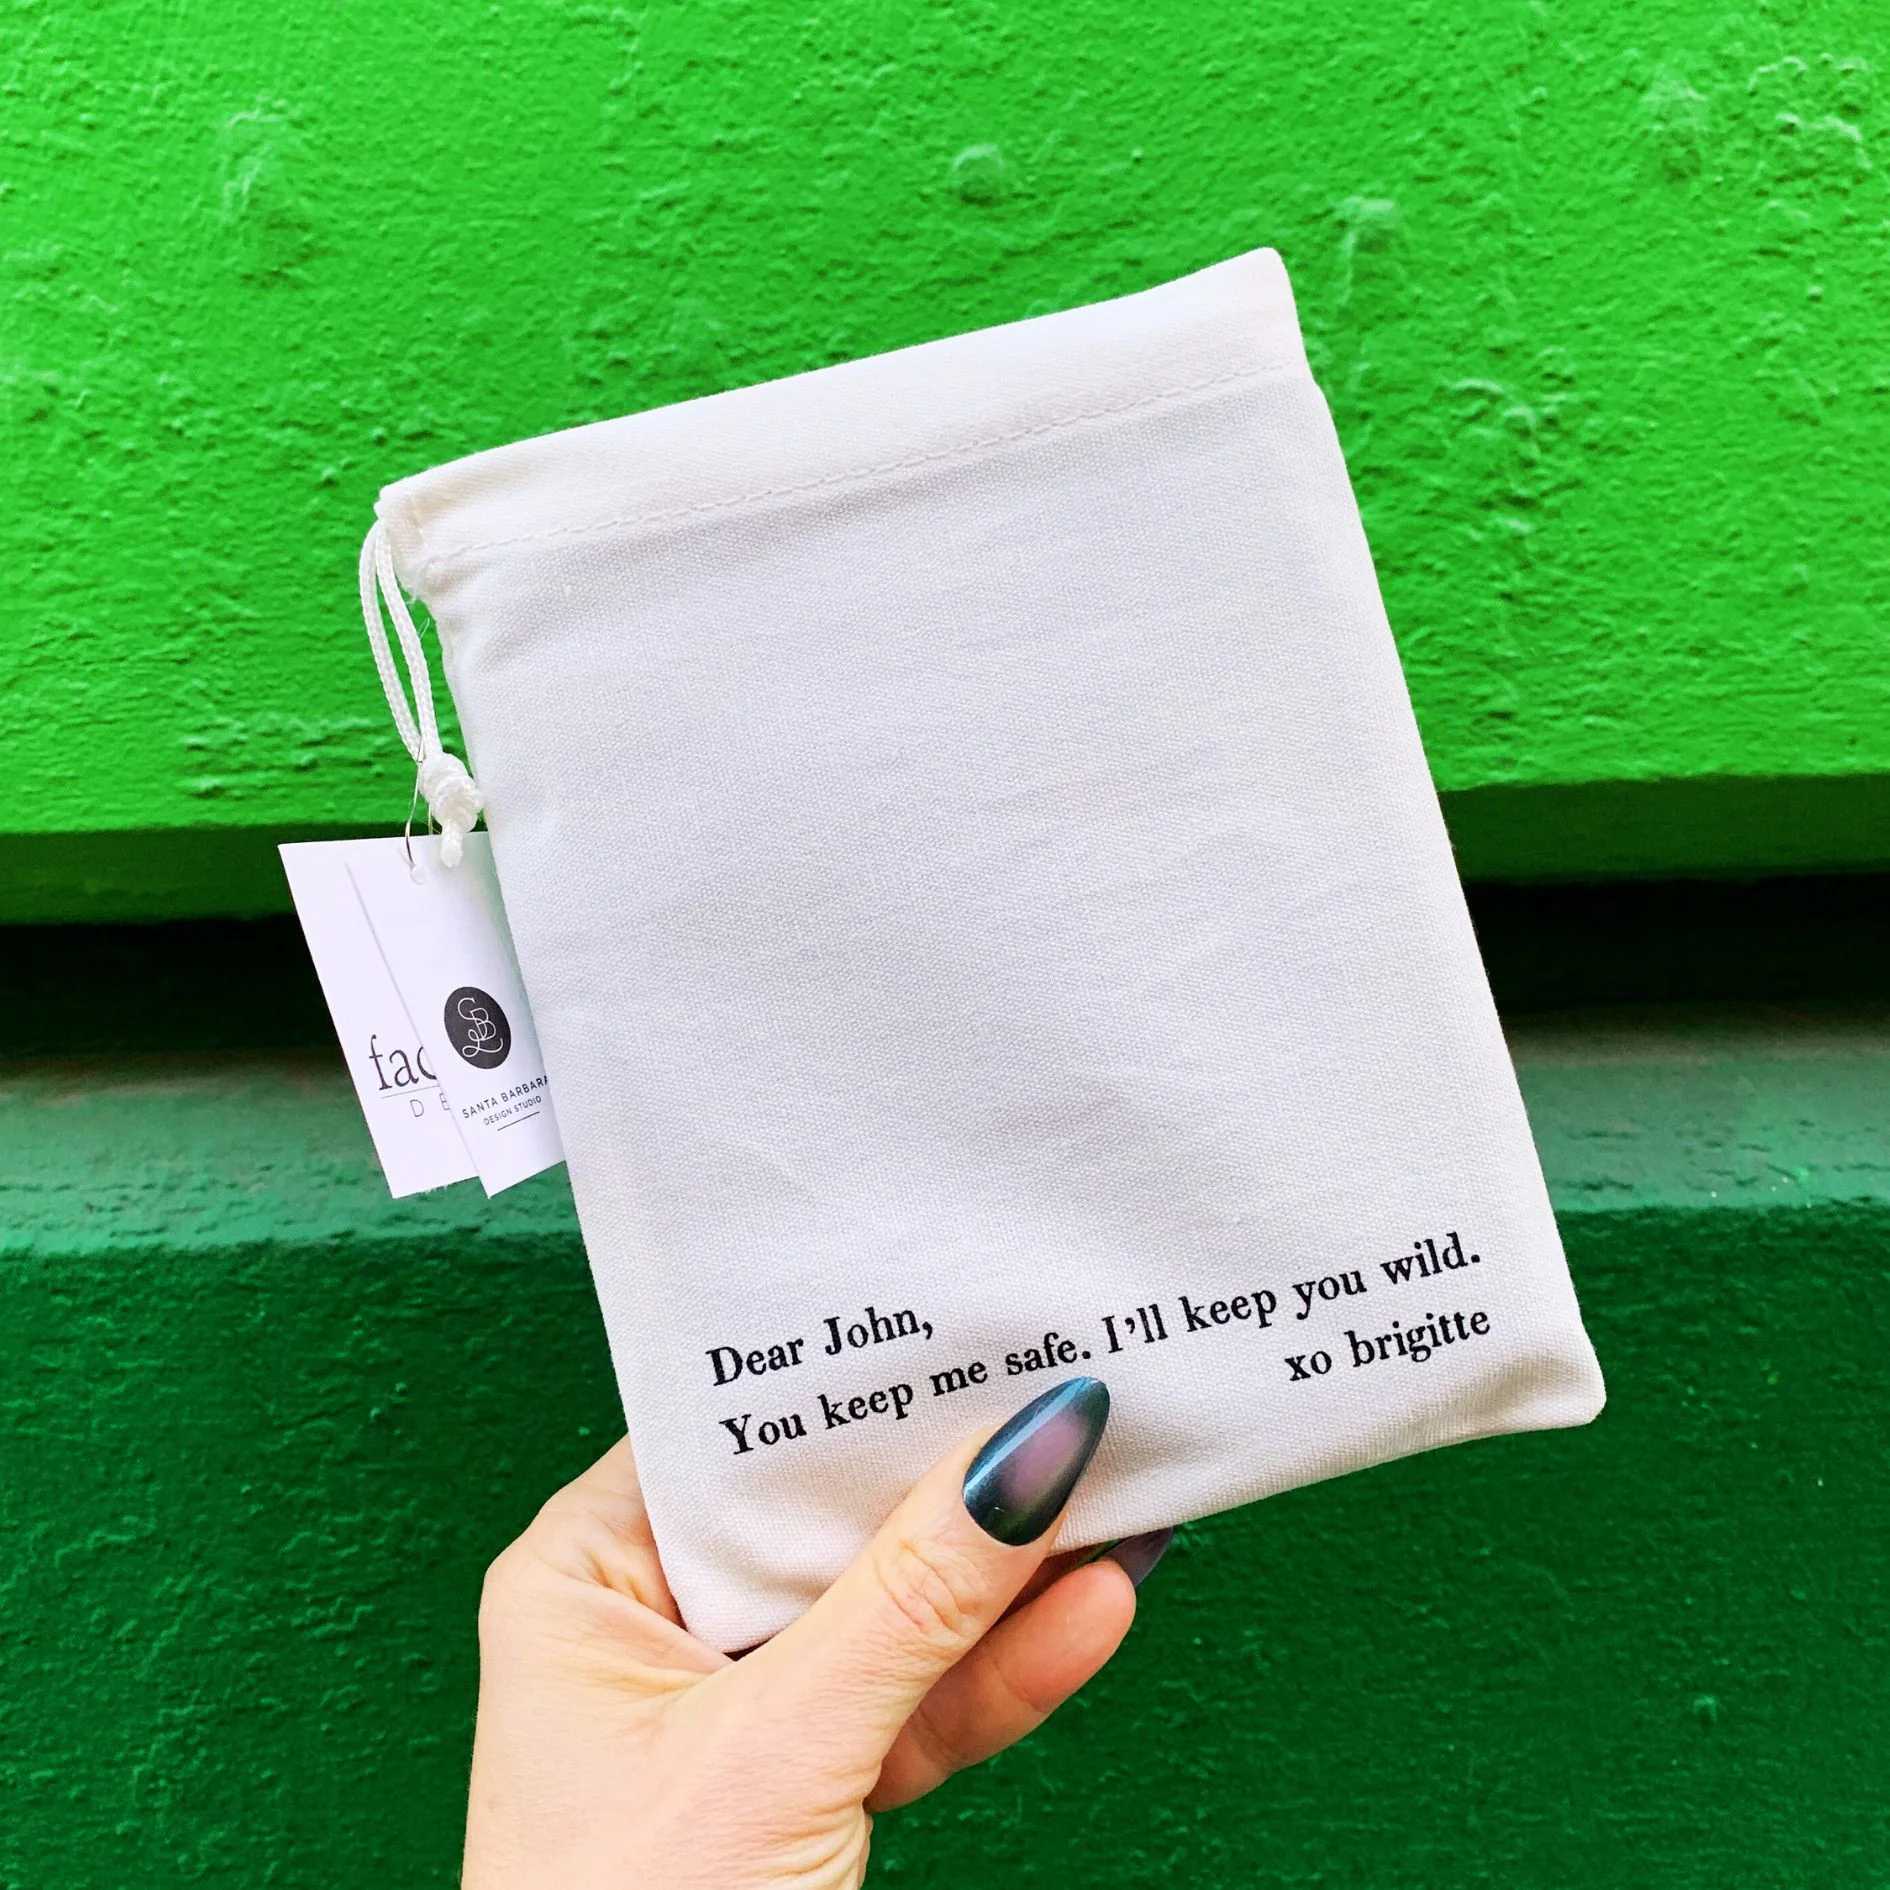 Dear John,
You keep me safe. I'll keep you wild.
xo brigitte
SB
SANTA BARBARA
DESIGN STUDIO